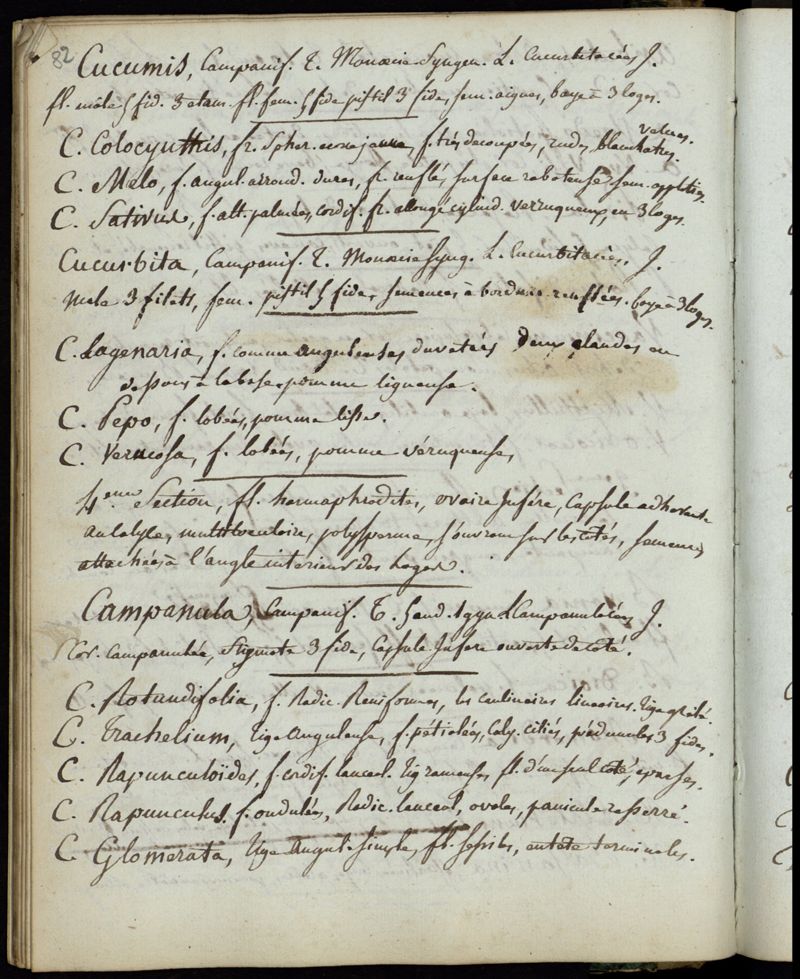 82
Cucumis, Campanif. T. Monœcie Syngen. L. Cucurbitacées J.
fl. male 5 fid. 3 etam. fl. fem. 5 fide pistil 3 fides, sem. aigues, baye à 3 loges.
C. Colocynthis, fr. Spher. jaune, f. très decoupées, rudes, blanchatres. velues.
C. Melo, f. angul. arrond. dures, fr. renflé, surface raboteuse sem. applaties.
C. Sativus, f. alt. palmées, cordif. fr. allongé cylind. verruqueux, en 3 loges.
Cucurbita, Campanif. T. Monœcie Syng. L. Cucurbitacées. J.
Male 3 filets, fem. pistil 5 fides, semences à bordure renflées. baye à 3 loges.
C. Lagenaria, f. comme anguleuses duvetées Deux glandes en
dessous à la base, pomme ligneuse.
C. Pepo, f. lobées, pomme lisse.
C. Verucosa, f. lobées, pomme véruqueuse,
4eme Section, fl. hermaphrodites, ovaire Infére, Capsule adherente
au calyle, multiloculaire, polysperme, s'ouvrant sur les côtés, semences
attachées à l'angle interieur des loges.
Campanula, Campanif. T. 5 and. 1 gyn. L Campanulacées J.
Cor. campanulée, Stigmate 3 fide, Capsule Infére ouverte de coté.
C. Rotundifolia, f. Radic. Reniformes, les caulinaires lineaires. Tige grêle.
C. Trachelium, Tige Anguleuse, f. pétiolées, Caly. ciliés, péduncules 3 fides.
C. Rapunculoïdes, f. cordif. lanceol. Tig rameuses fl. d'un seul coté, eparses.
C. Rapunculus, f. ondulées, Radic. lanceol, ovales, panicule resserré.
C. Glomerata, Tige Angul. Simple, fl. sessiles, en tête terminales.